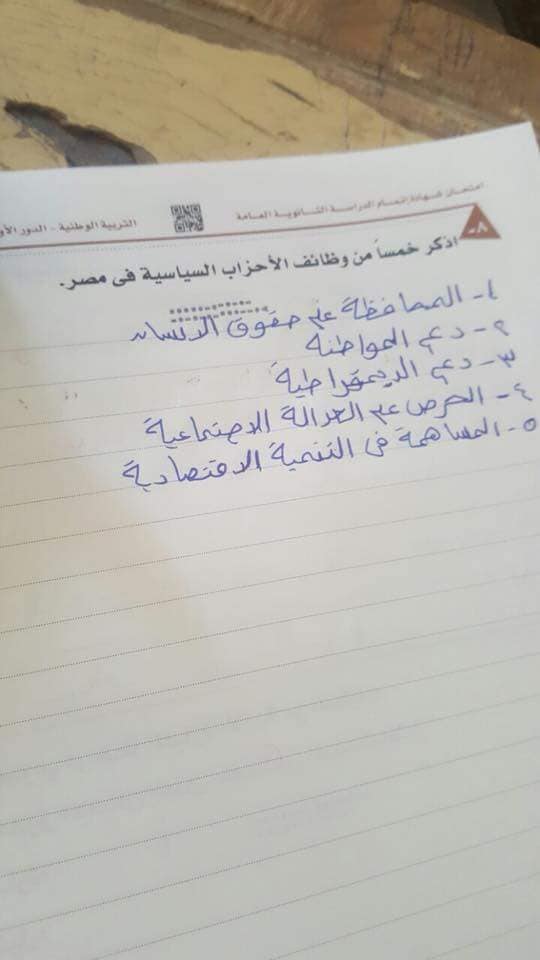 امتحان شهادة إتمام الدراسة الثانوية العامة التربية الوطنية - الدور الأو
٨- اذكر خمساً من وظائف الأحزاب السياسية فى مصر.
١- المحافظة على حقوق الانسان
٢- دعم المواطنة
٣- دعم الديمقراطية
٤- الحرص على العدالة الاجتماعية
٥- المساهمة فى التنمية الاقتصادية